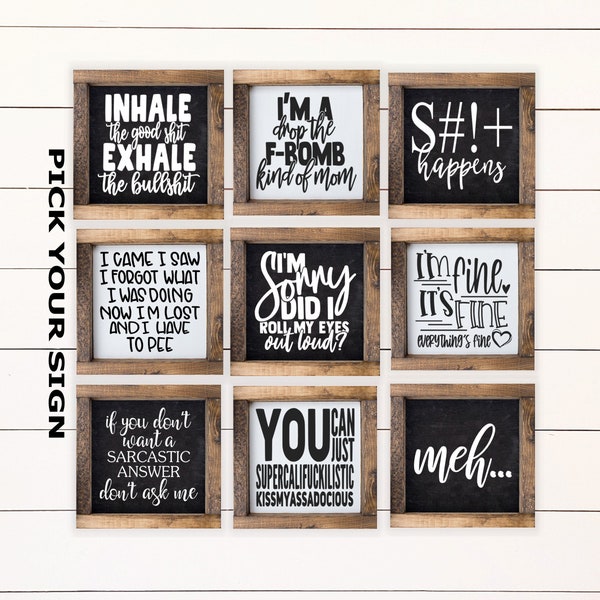 PICK YOUR SIGN
INHALE
the good shit
EXHALE
the bullshit
I'M A
drop the
F-BOMB
kind of mom
S#!+
happens
I CAME I SAW
I FORGOT WHAT
I WAS DOING
NOW I'M LOST
AND I HAVE
TO PEE
I'M
Sorry
DID I
ROLL MY EYES
out loud?
I'm fine.
IT'S FINE
everything's fine
if you don't
want a
SARCASTIC
ANSWER
don't ask me
YOU CAN
JUST
SUPERCALIFUCKILISTIC
KISSMYASSADOCIOUS
meh...